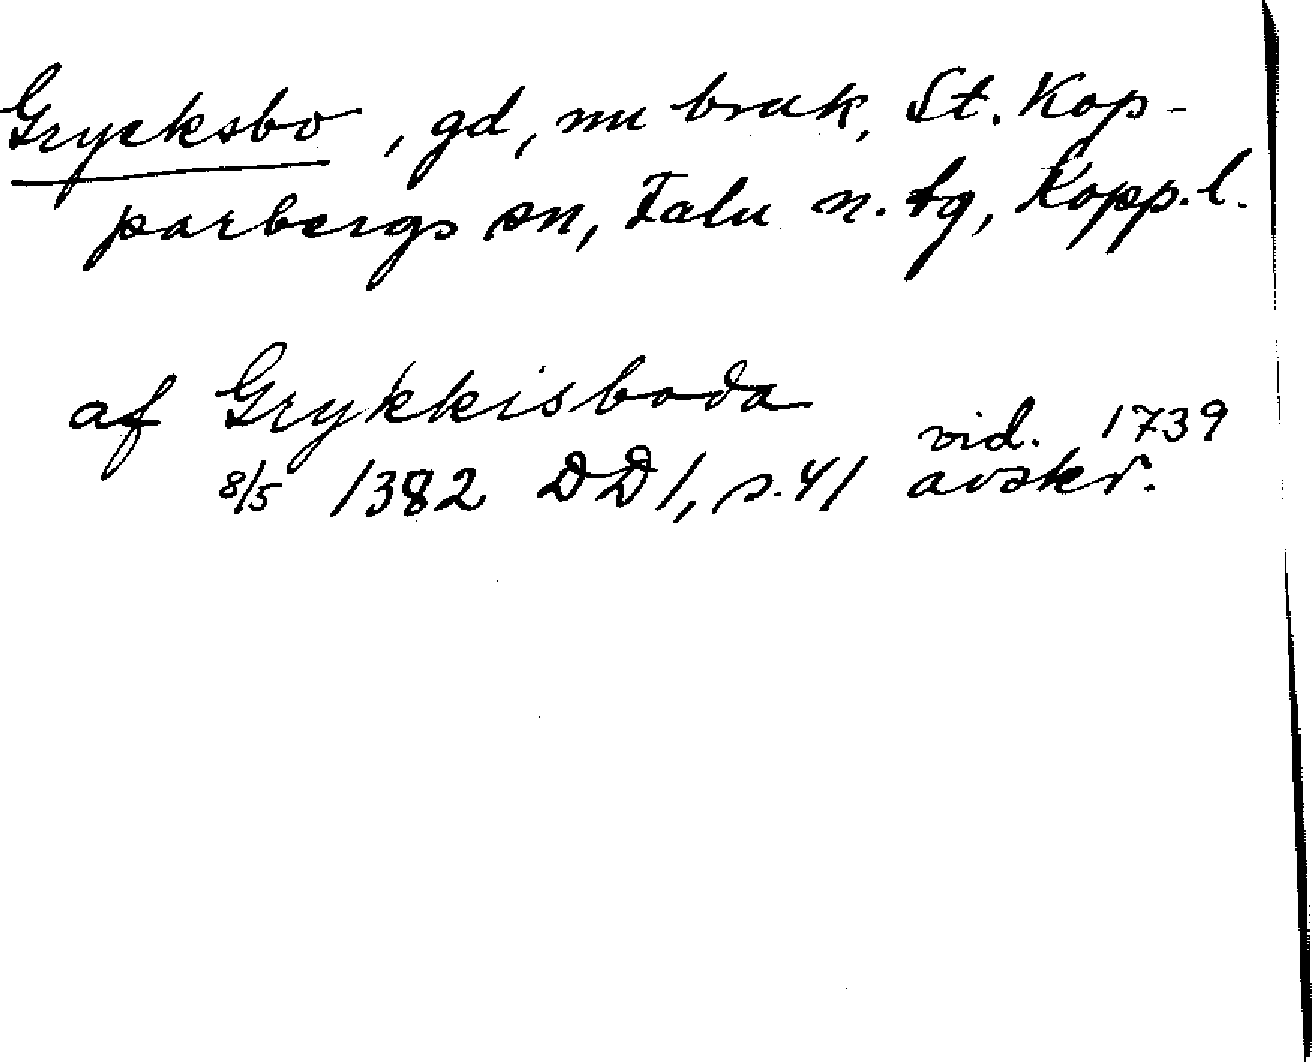 Grycksbo, gd, nu bruk, St. Kop-
parbergs sn, Falu n. tg, Kopp. l.
af Grykkisboda
vid. 1739
8/5 1382 DD 1, s. 41 avskr.